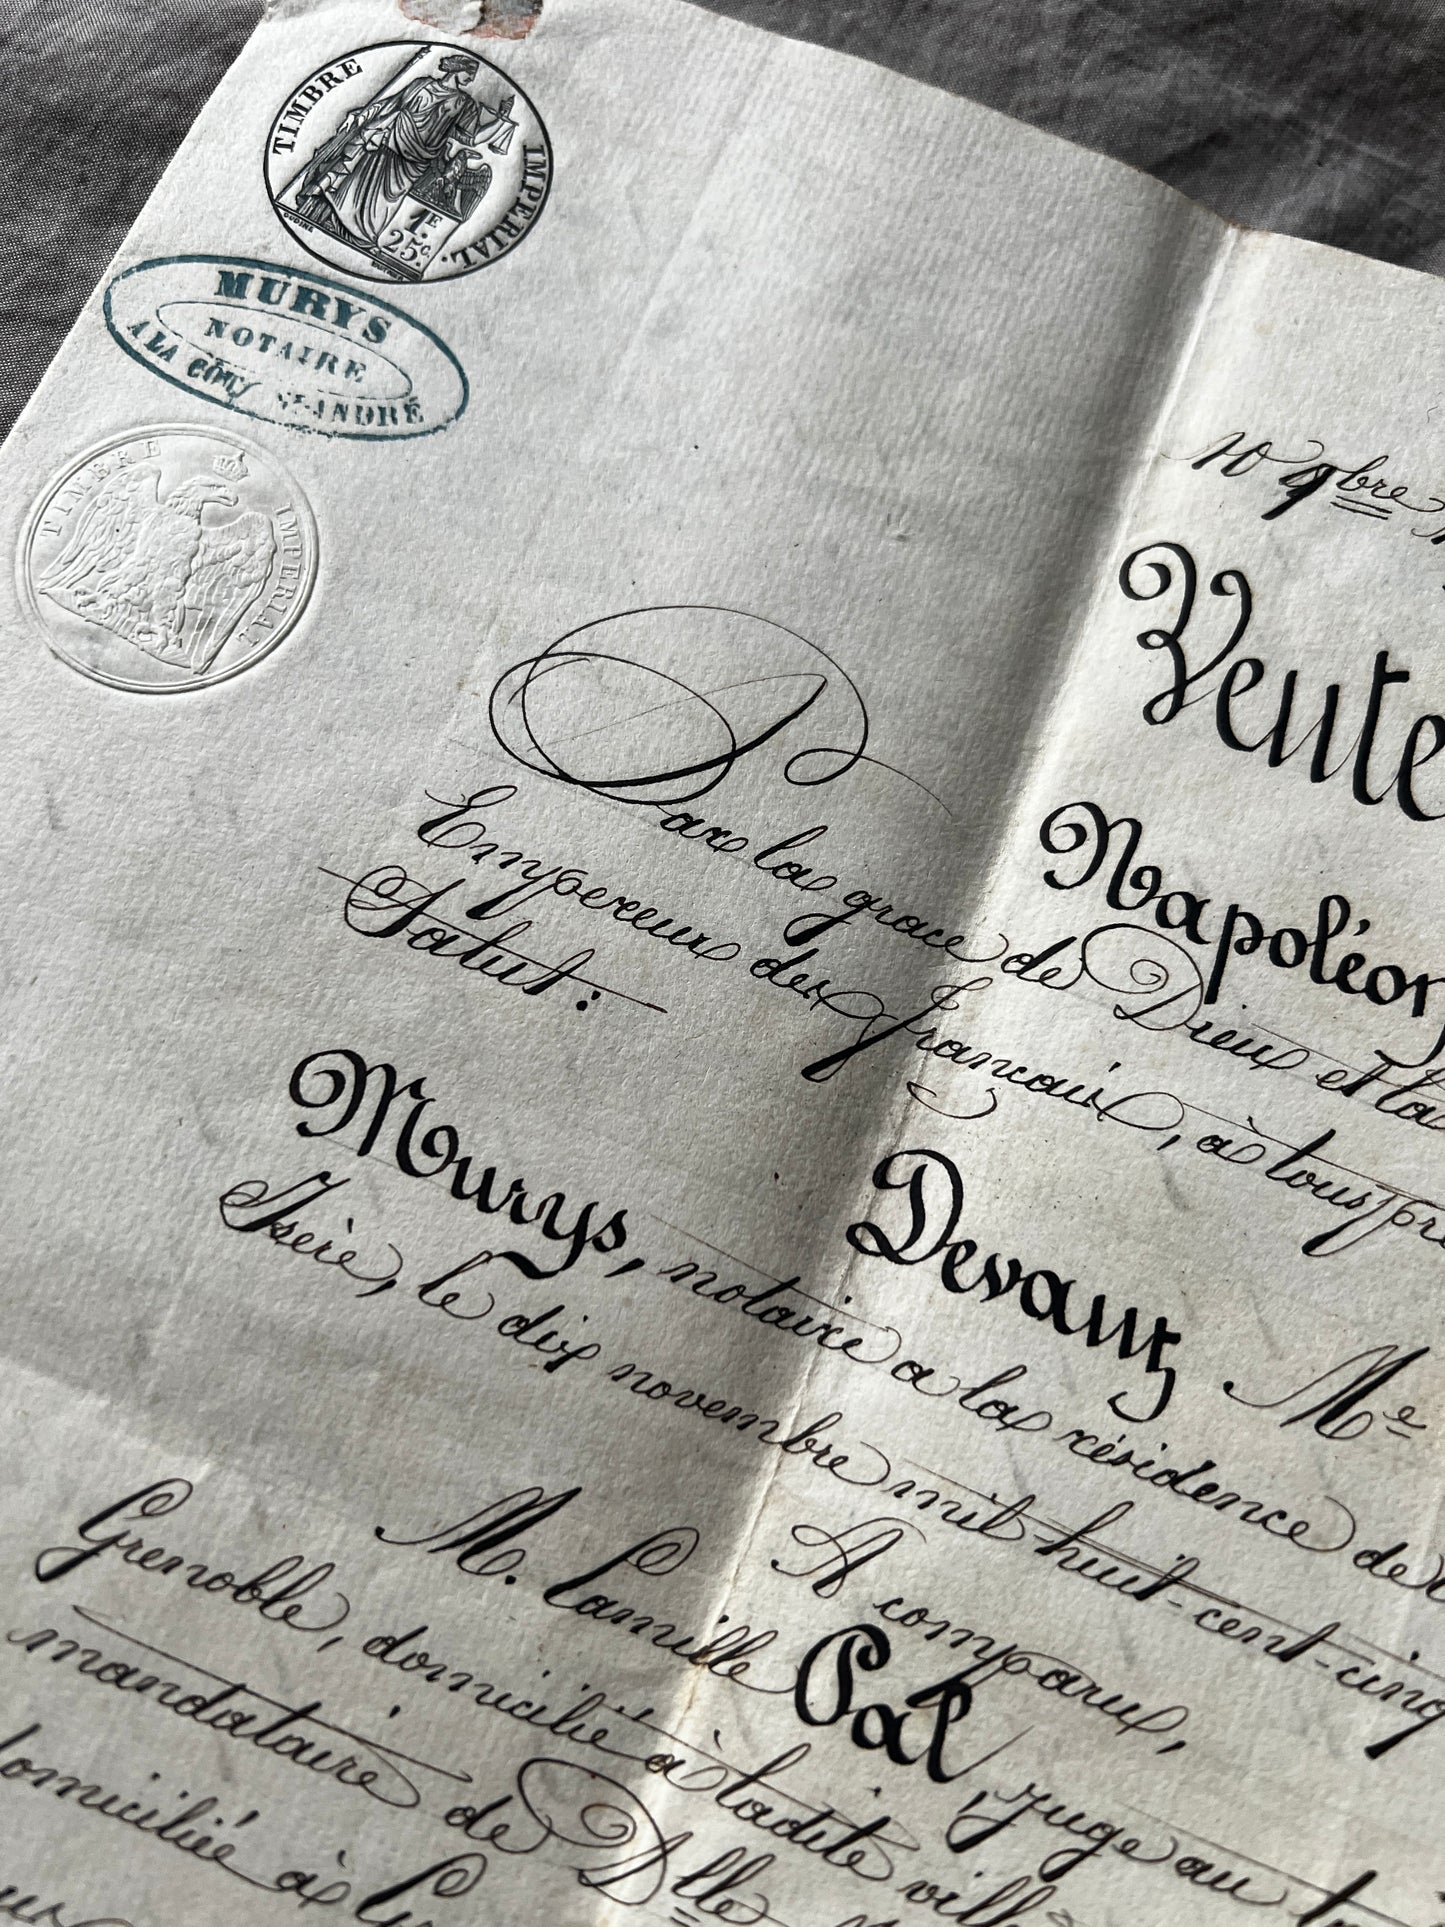 TIMBRE IMPERIAL.
1F. 25c.
MURYS
NOTAIRE
A LA CÔTE ST-ANDRÉ
TIMBRE IMPERIAL
10 9bre
Vente
Napoléon
Par la grace de Dieu et la
Empereur des français, à tous
Salut:
Devant Me
Murys, notaire a la résidence de
Isère, le dix novembre mil-huit-cent-cinq
A comparu,
M. Camille Pal, juge au
Grenoble, domicilié à ladite ville
mandataire de Dlle
domiciliée à